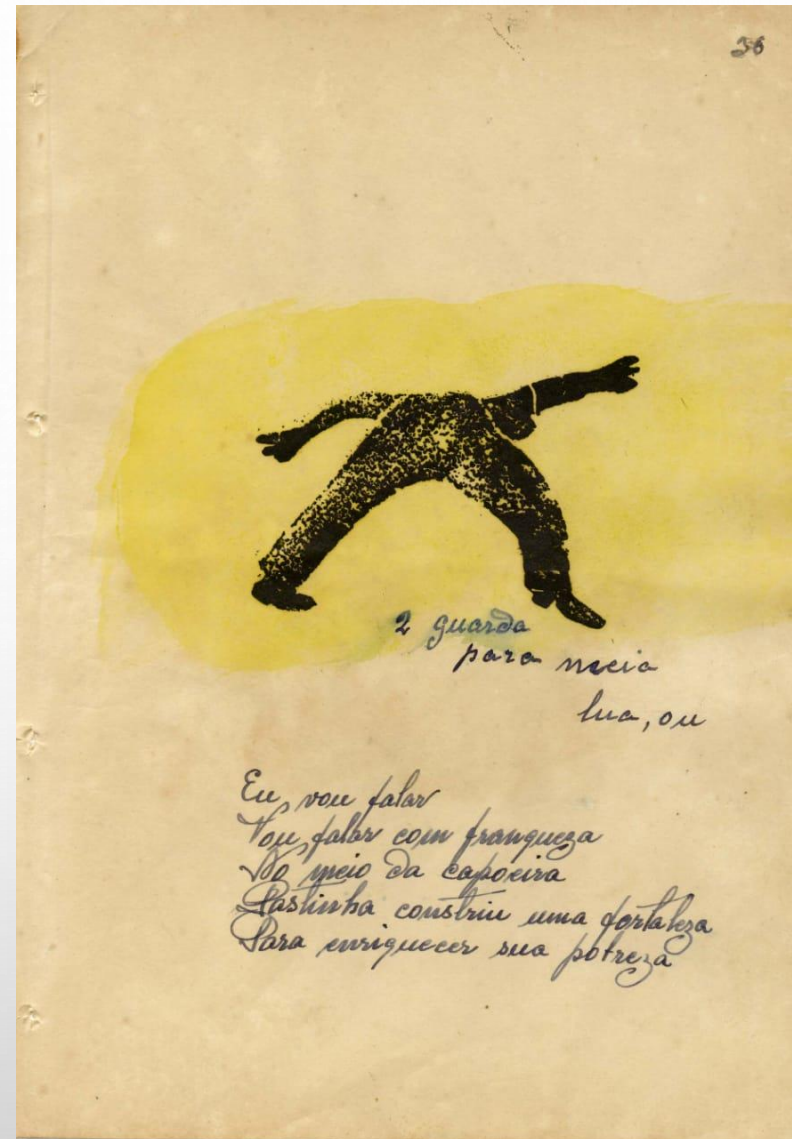 36
2 guarda
para meia
lua, ou
Eu vou falar
Vou falar com franqueza
No meio da capoeira
Pastinha constriu uma fortaleza
Para enriquecer sua pobreza